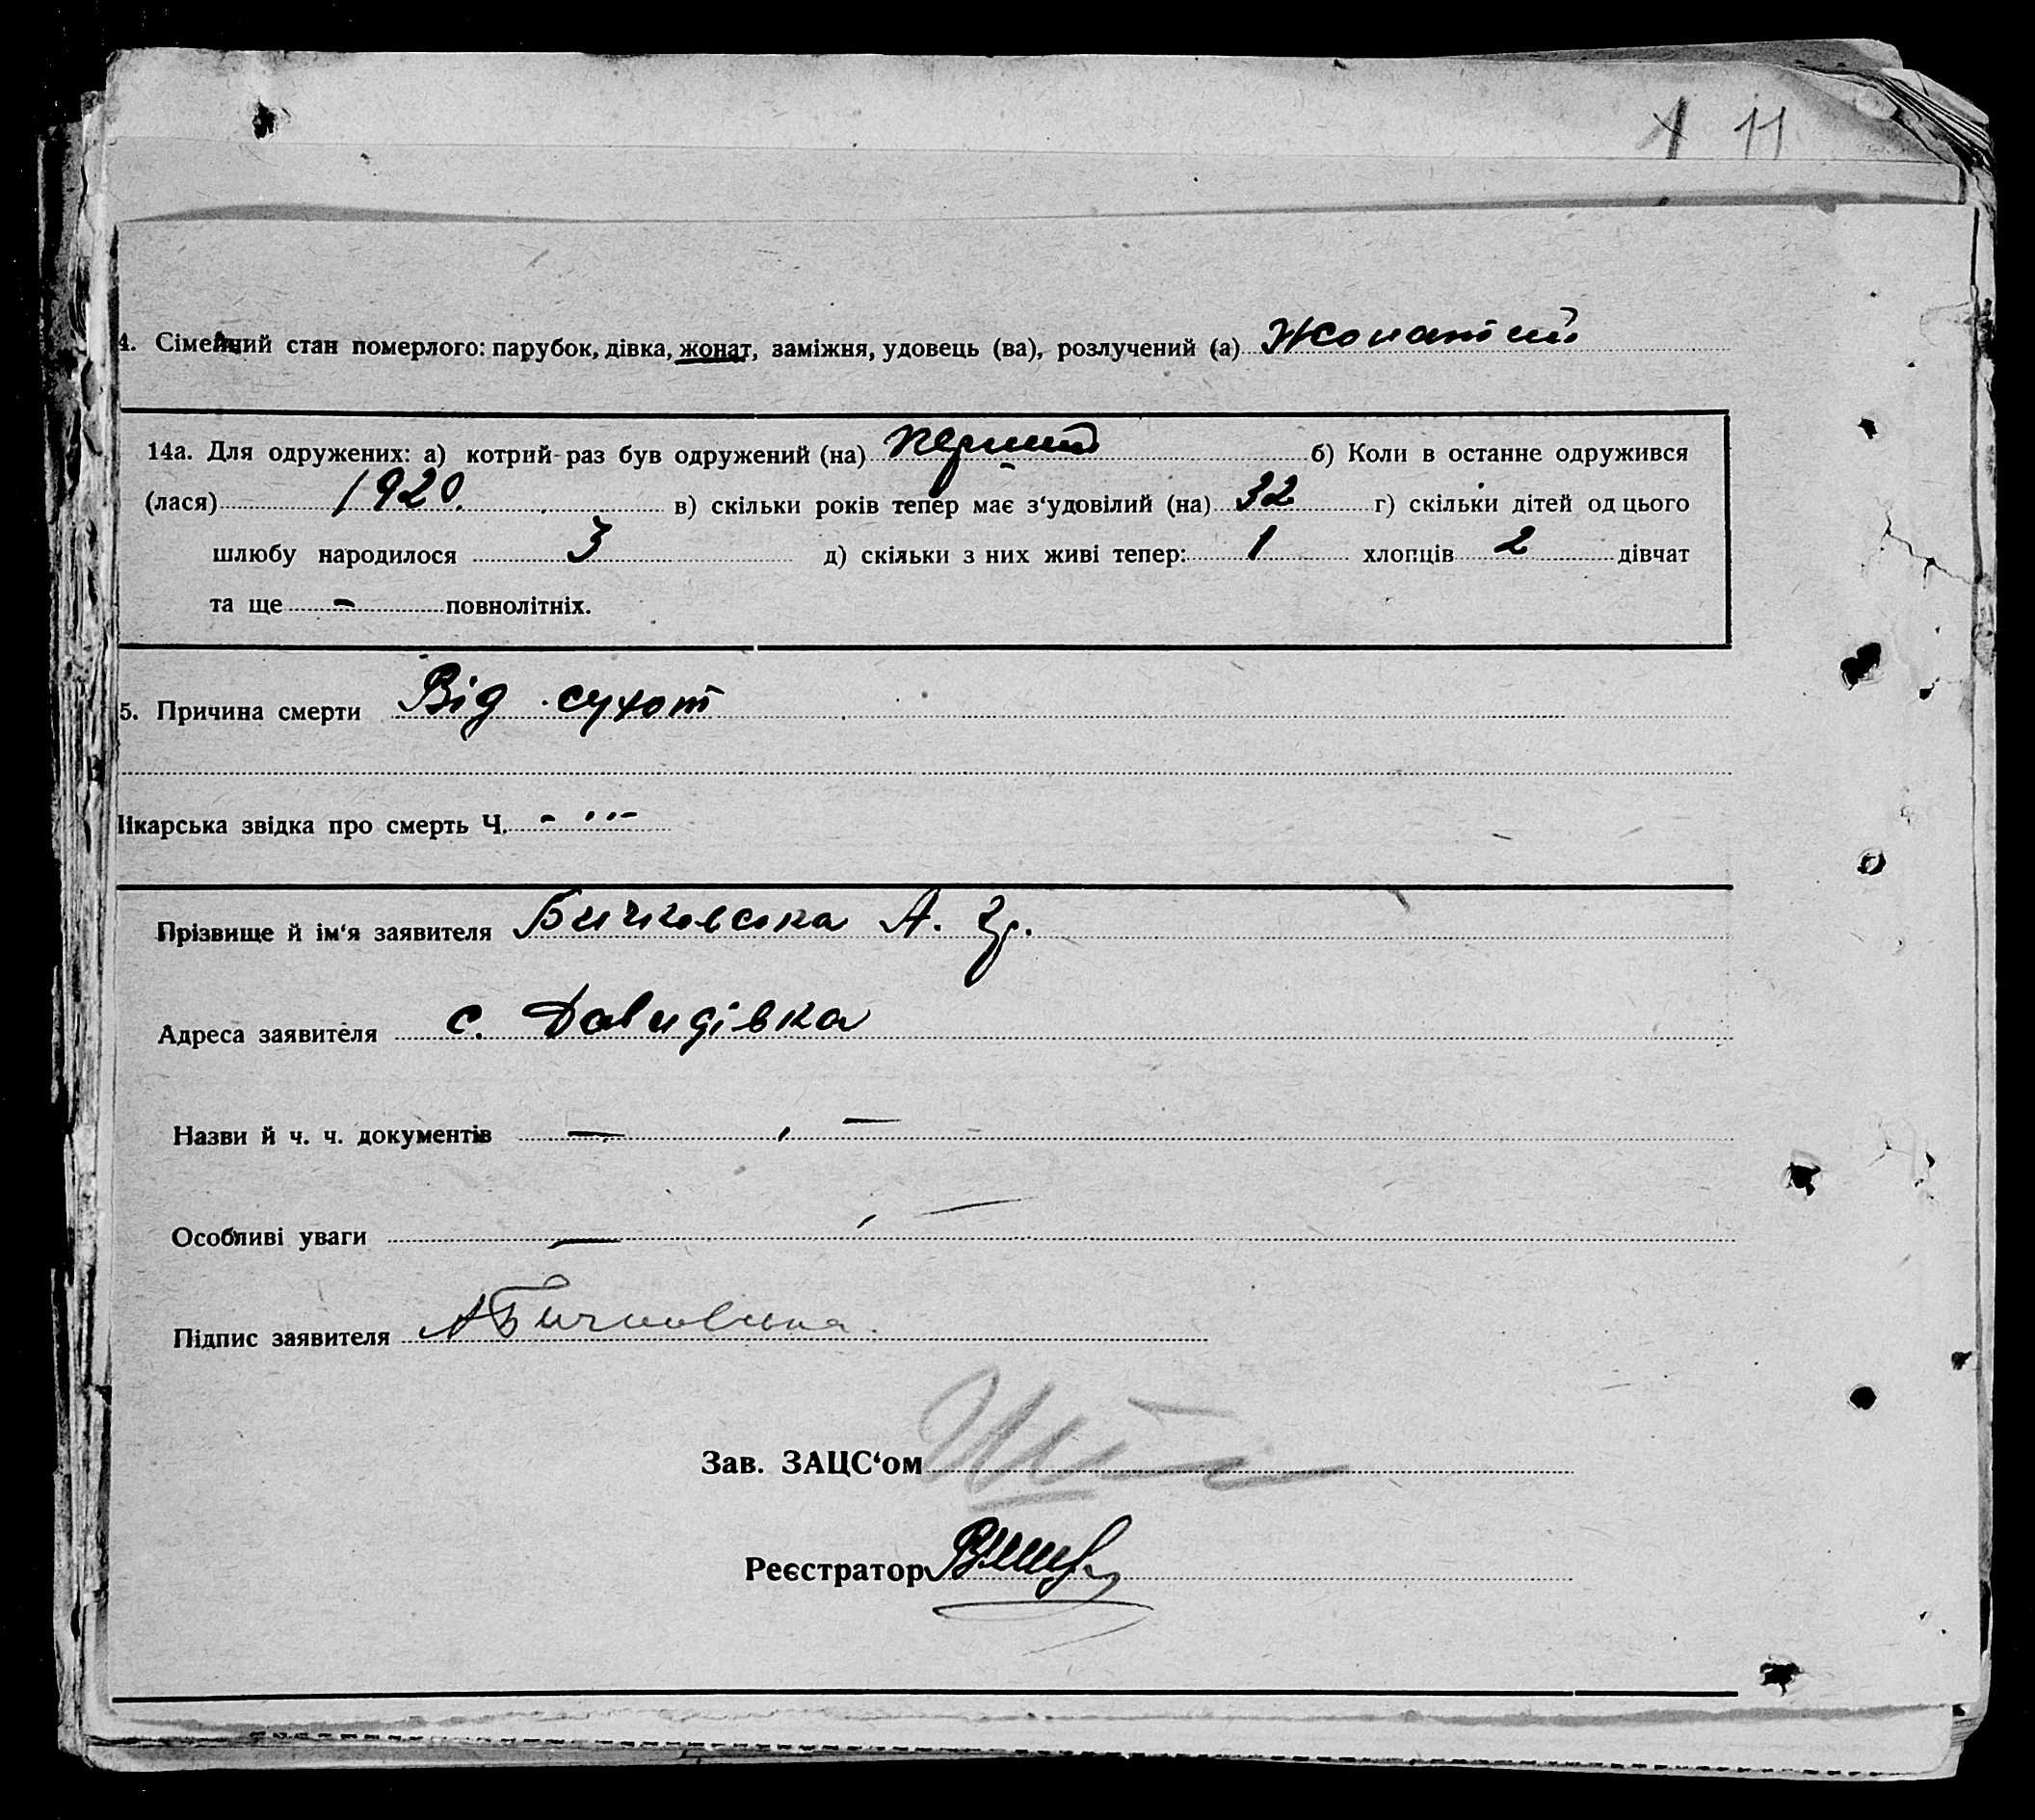 11
4. Сімейний стан померлого: парубок, дівка, жонат, заміжня, удовець (ва), розлучений (а) Жонатий
14а. Для одружених: а) котрий раз був одружений (на) перший б) Коли в останнє одружився
(лася) 1920. в) скільки років тепер має з‘удовілий (на) 32 г) скільки дітей од цього
шлюбу народилося 3 д) скільки з них живі тепер: 1 хлопців 2 дівчат
та ще - повнолітніх.
5. Причина смерти Від сухот
Лікарська звідка про смерть Ч.
Прізвище й ім‘я заявителя Бичковська А. Гр.
Адреса заявителя с. Давидівка
Назви й ч. ч. документів
Особливі уваги
Підпис заявителя АБичковська
Зав. ЗАЦС‘ом
Реєстратор